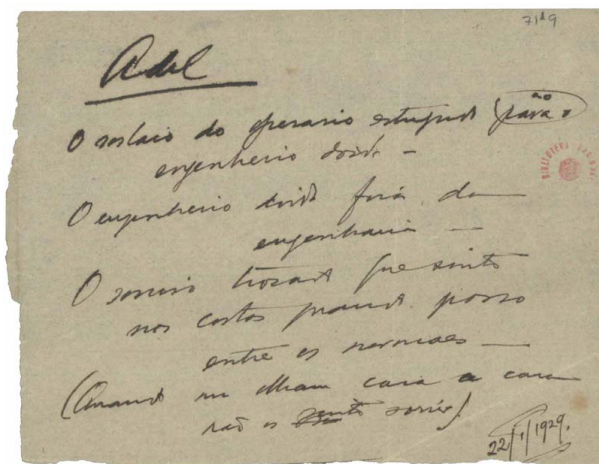 7189
A de C
O soslaio do operario estupido para o
ao
engenheiro doido —
O engenheiro doido fóra da
engenharia —
O sorriso trocado que sinto
nos costas quando passo
entre os normaes —
(Quando me olham cara a cara
não os sinto sorrir).
22/1/1929.
BIBLIOTECA NACIONAL